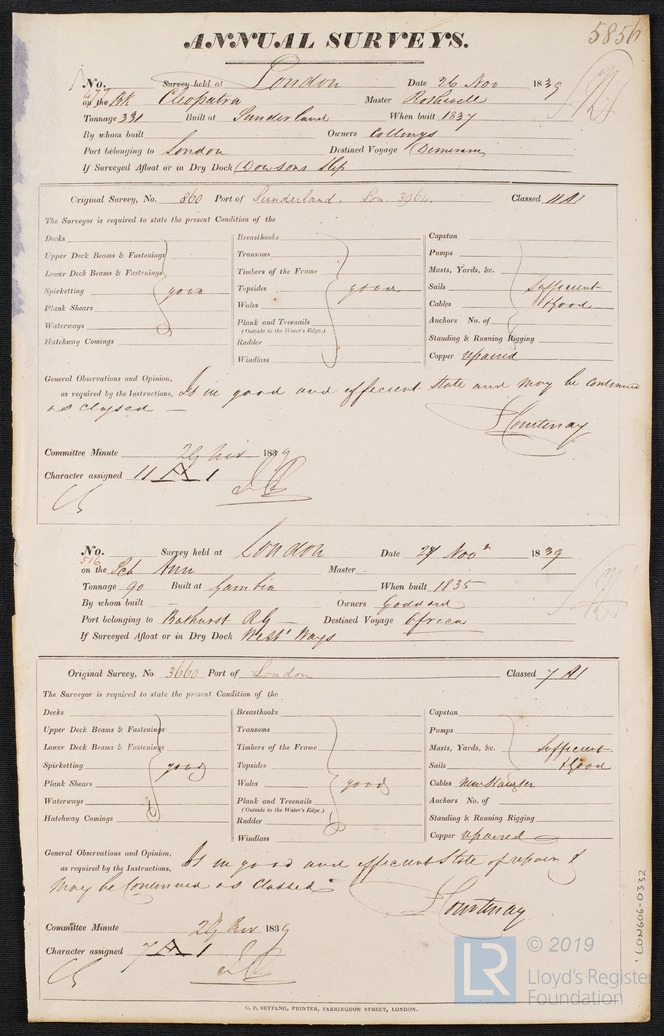 ANNUAL SURVEYS.
5856
No. Survey held at London Date 26 Nov 1839
on the Bk Cleopatra Master Rothwell
Tonnage 331 Built at Sunderland When built 1837
By whom built Owners
Port belonging to London Destined Voyage Demerara
If Surveyed Afloat or in Dry Dock Dowsons Slip
Original Survey, No. 860 Port of Sunderland. Lon. 3964. Classed 11 A1
The Surveyor is required to state the present Condition of the
Decks Breasthooks Capstan
Upper Deck Beams & Fastenings Transoms Pumps
Lower Deck Beams & Fastenings Timbers of the Frame Masts, Yards, &c.
Spirketting good Topsides good Sails Sufficient
Plank Shears Wales Cables & Good
Waterways Plank and Treenails Anchors No. of
(Outside to the Water's Edge.)
Hatchway Comings Rudder Standing & Running Rigging
Windlass Copper repaired
General Observations and Opinion, as required by the Instructions, Is in good and efficient state and may be continued
as classed —
J Courtenay
Committee Minute 29 Nov 1839
Character assigned 11 A 1
No. Survey held at London Date 27 Novr 1839
516
on the Sch Ann Master
Tonnage 90 Built at Gambia When built 1835
By whom built Owners Goddard
Port belonging to Bathurst Destined Voyage Africa
If Surveyed Afloat or in Dry Dock West Ways
Original Survey, No 3660 Port of London Classed 7 A1
The Surveyor is required to state the present Condition of the
Decks Breasthooks Capstan
Upper Deck Beams & Fastenings Transoms Pumps
Lower Deck Beams & Fastenings Timbers of the Frame Masts, Yards, &c. Sufficient
Spirketting good Topsides Sails & Good
Plank Shears Wales good Cables New Hawser
Waterways Plank and Treenails Anchors No. of
(Outside to the Water's Edge.)
Hatchway Comings Rudder Standing & Running Rigging
Windlass Copper repaired
General Observations and Opinion, as required by the Instructions, Is in good and efficient State of repair &
may be Continued as Classed
J Courtenay
Committee Minute 29 Nov 1839
Character assigned 7 A 1
LON606-0332
C. F. SEYFANG, PRINTER, FARRINGDON STREET, LONDON.
LR
© 2019
Lloyd's Register
Foundation